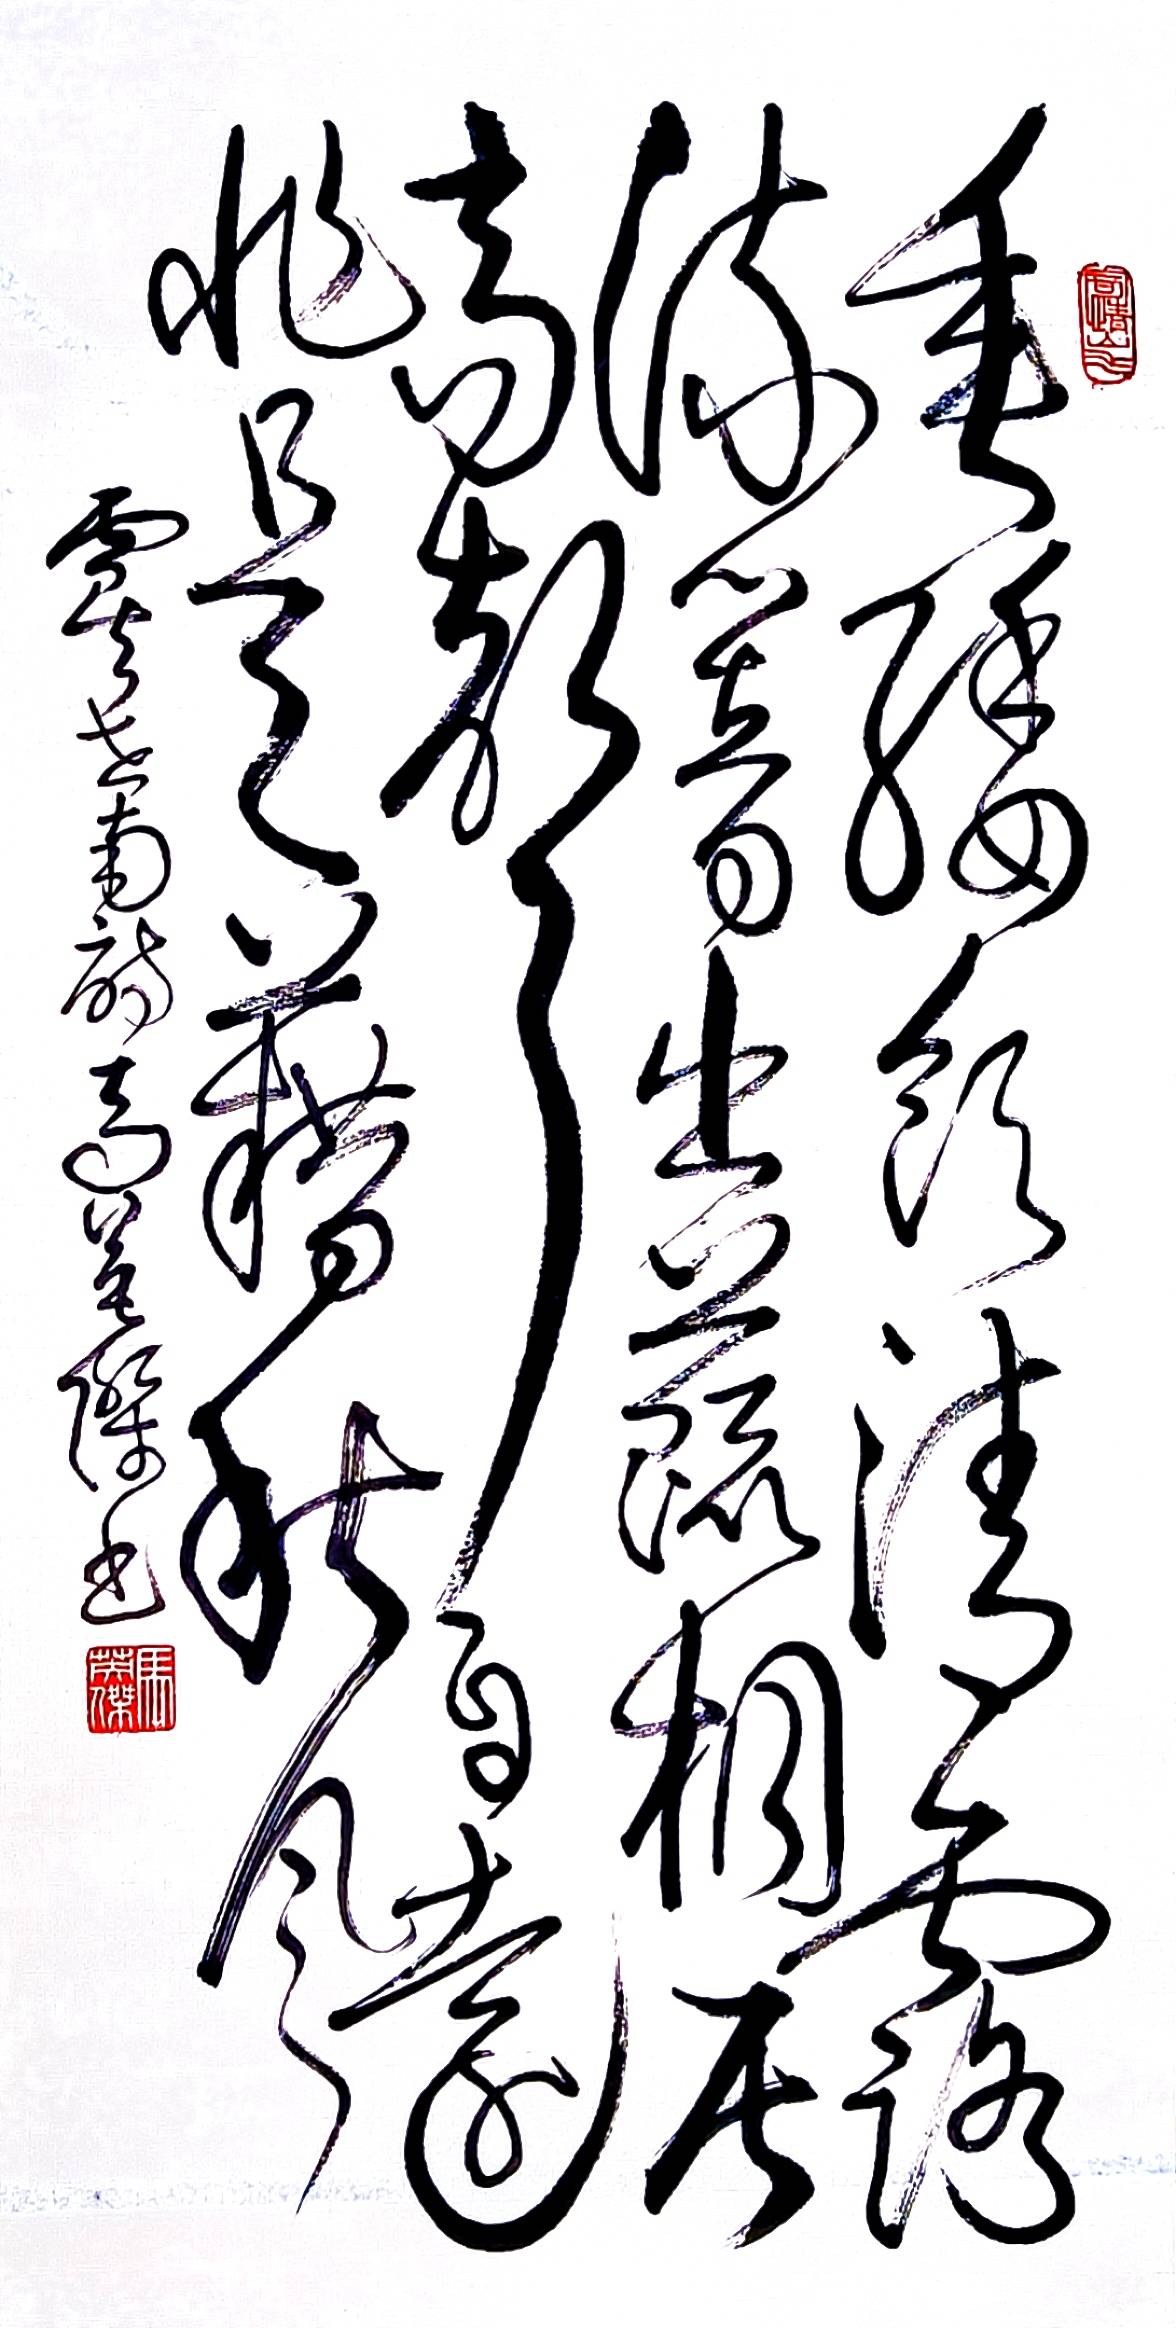 垂綏飲清露
流響出蔬桐居
高聲自遠
非是藉秋風
虞世南詩馬英傑書
馬英傑